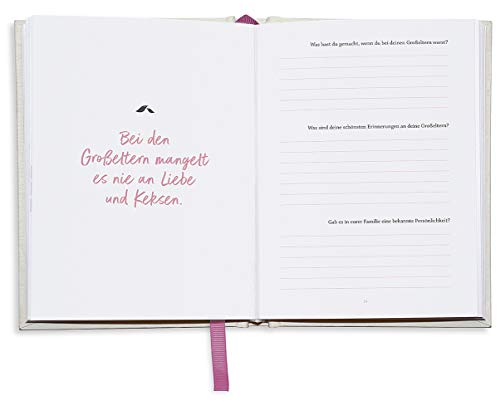 Bei den
Großeltern mangelt
es nie an Liebe
und Keksen.
Was hast du gemacht, wenn du bei deinen Großeltern warst?
Was sind deine schönsten Erinnerungen an deine Großeltern?
Gab es in eurer Familie eine bekannte Persönlichkeit?